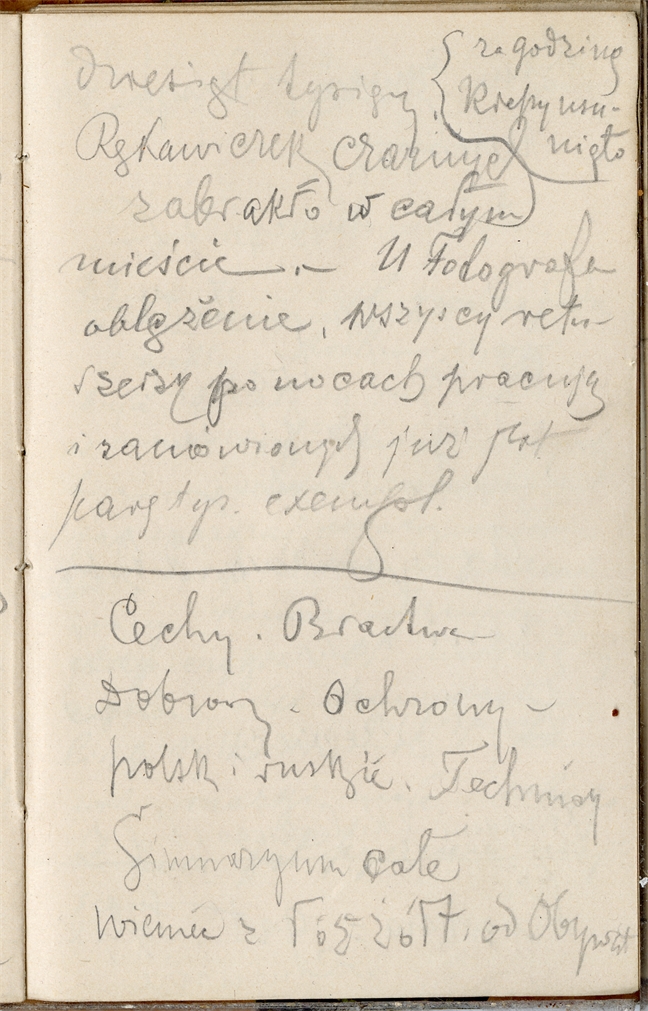 dwesigt tysięcy
za godzinę
Krepy usu-
nięto
Rękawiczek czarnych
zabrakło w całym
mieście. – U Fotografa
oblężenie, wszyscy retu-
szerzy po nocach pracują
i zamówionych już jest
parę tys. exempl.
Cechy. Bractwa
Dobrocz. Ochrony –
polsk i ruskie. Technicy
Gimnazyum całe
Wieniec z róż żółt. od Obywat